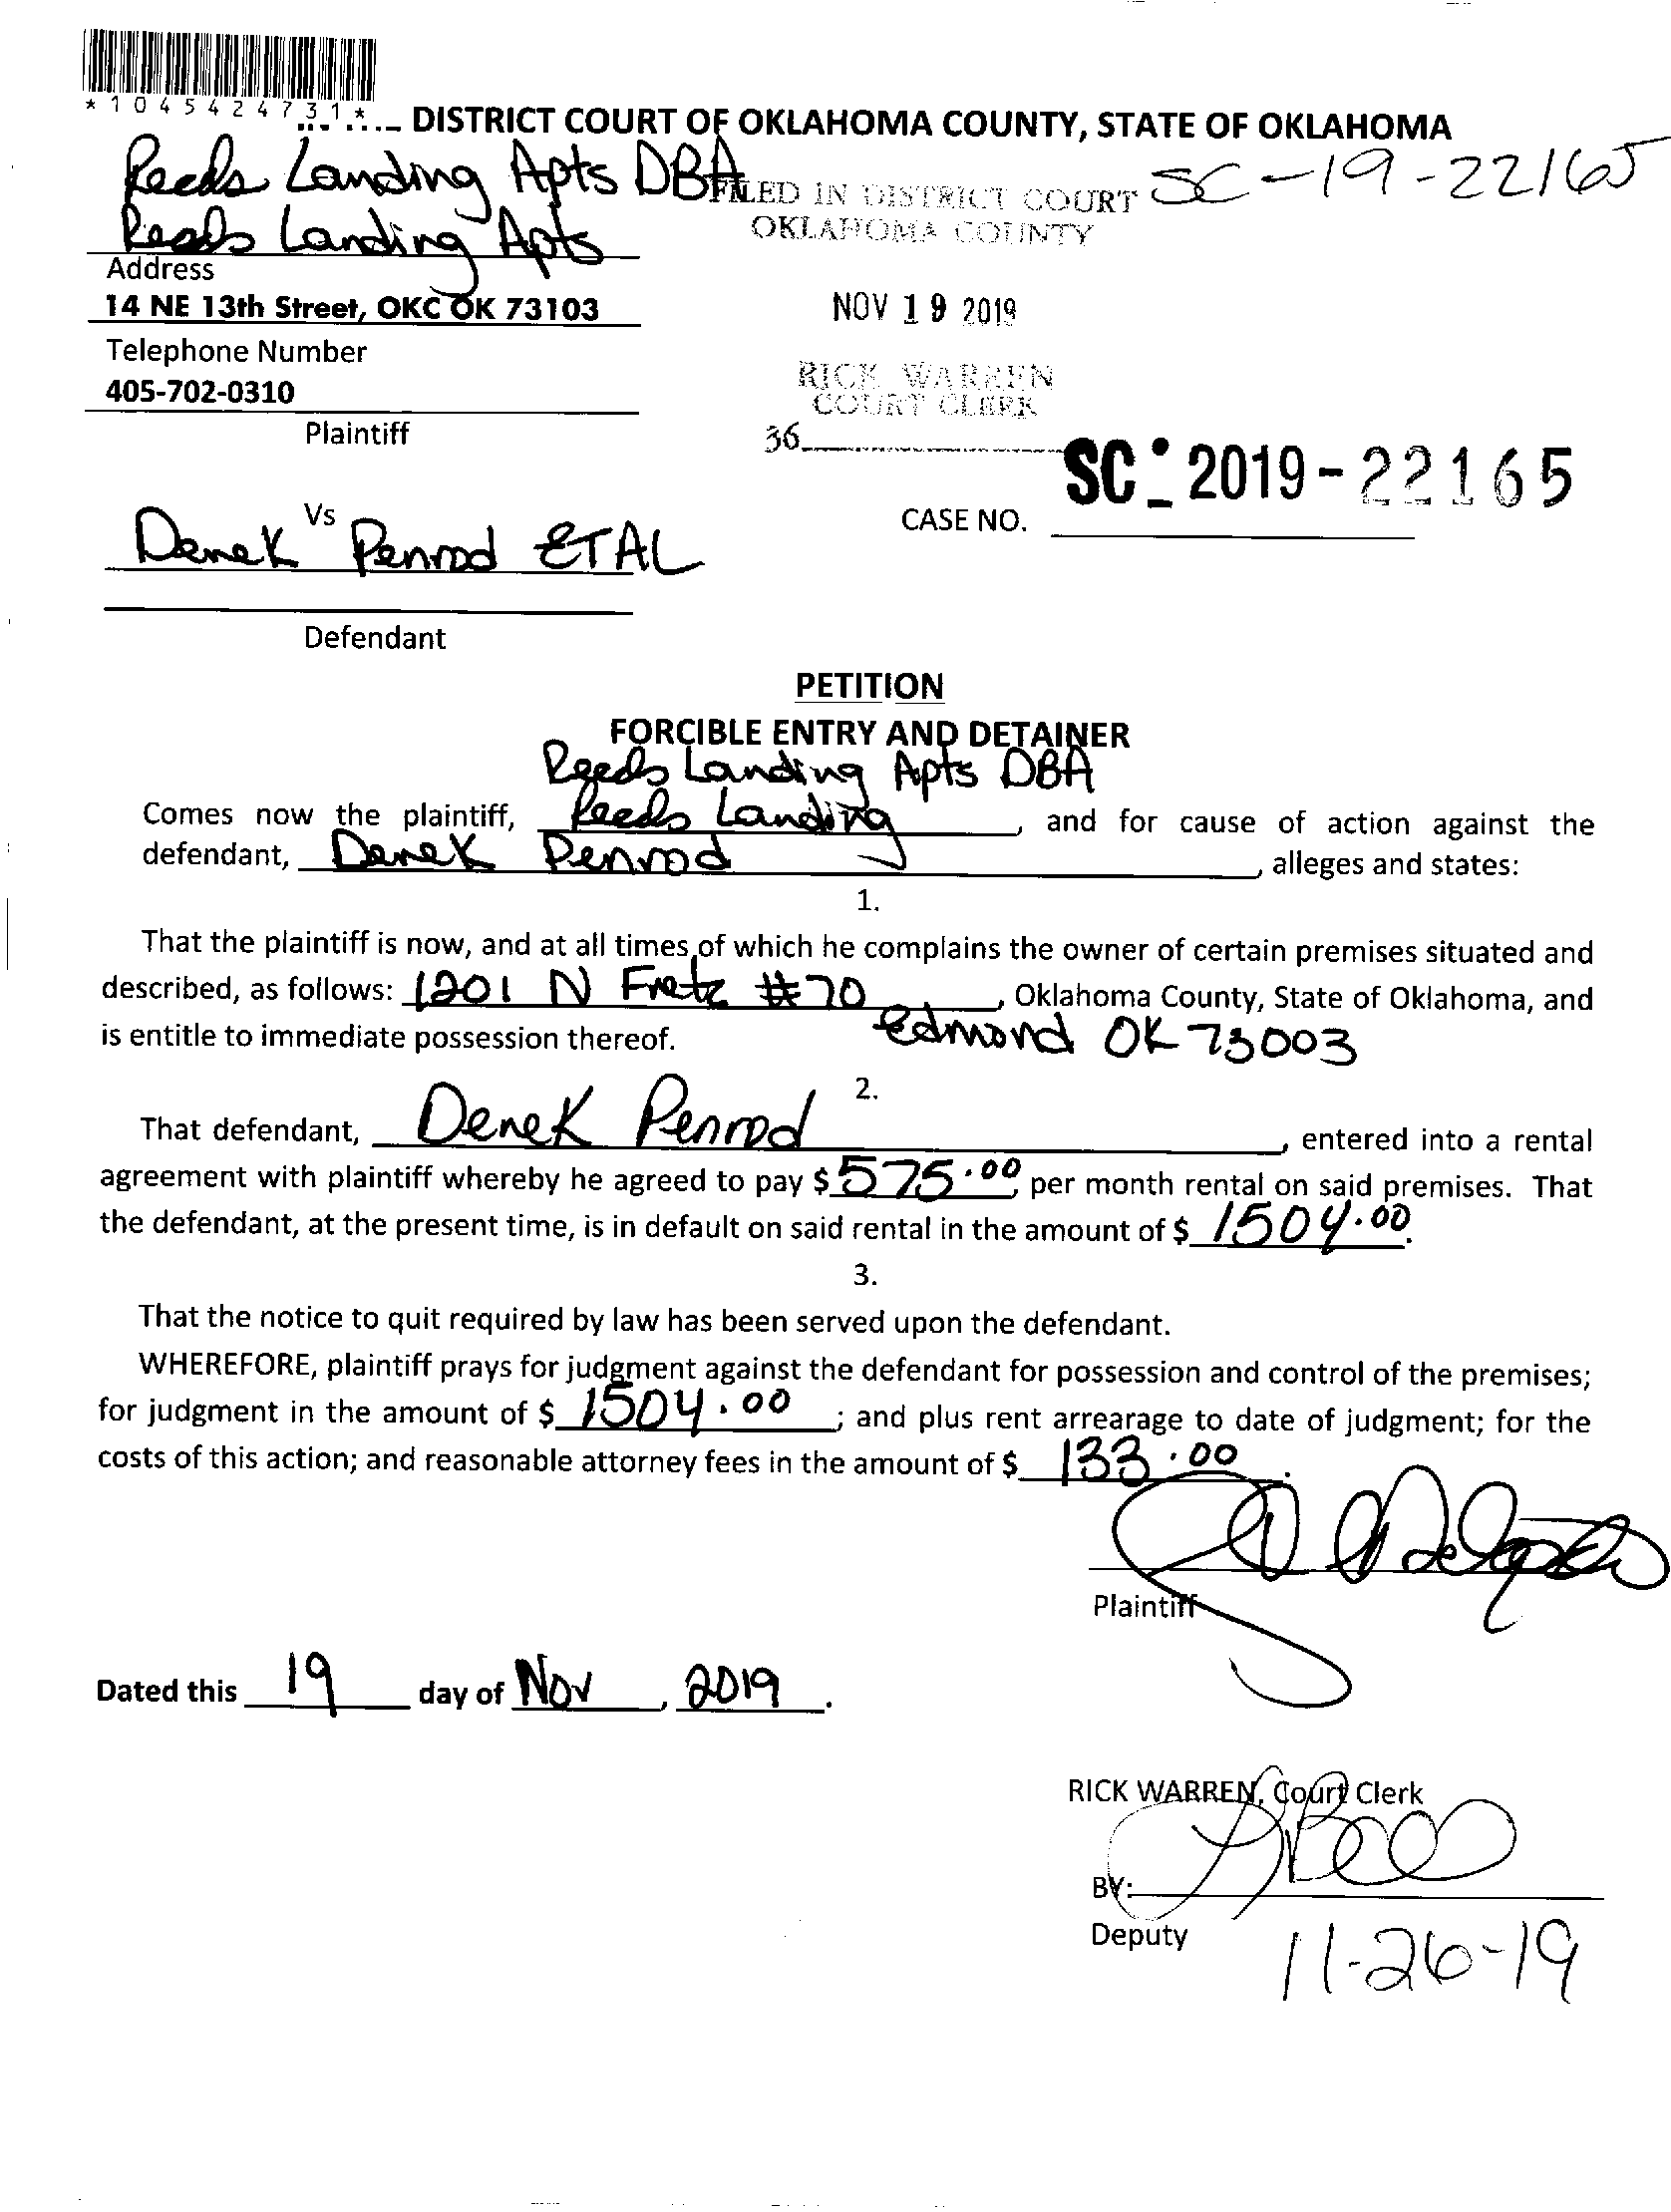 *1045424731*
DISTRICT COURT OF OKLAHOMA COUNTY, STATE OF OKLAHOMA
Reeds Landing Apts DBA
SC-19-22165
FILED IN DISTRICT COURT
Reeds Landing Apts
OKLAHOMA COUNTY
Address
14 NE 13th Street, OKC OK 73103
NOV 19 2019
Telephone Number
405-702-0310
RICK WARREN
COURT CLERK
Plaintiff
36
SC-2019-22165
CASE NO.
Vs
Derek Penrod ETAL
Defendant
PETITION
FORCIBLE ENTRY AND DETAINER
Reeds Landing Apts DBA
Comes now the plaintiff, Reeds Landing, and for cause of action against the
defendant, Derek Penrod, alleges and states:
1.
That the plaintiff is now, and at all times of which he complains the owner of certain premises situated and
described, as follows: 1201 N Fretz #70, Oklahoma County, State of Oklahoma, and
Edmond OK 73003
is entitle to immediate possession thereof.
2.
That defendant, Derek Penrod, entered into a rental
agreement with plaintiff whereby he agreed to pay $ 575.00 per month rental on said premises. That
the defendant, at the present time, is in default on said rental in the amount of $ 1504.00.
3.
That the notice to quit required by law has been served upon the defendant.
WHEREFORE, plaintiff prays for judgment against the defendant for possession and control of the premises;
for judgment in the amount of $ 1504.00; and plus rent arrearage to date of judgment; for the
costs of this action; and reasonable attorney fees in the amount of $ 133.00.
Plaintiff
Dated this 19 day of Nov, 2019.
RICK WARREN, Court Clerk
BY:
Deputy
11-26-19